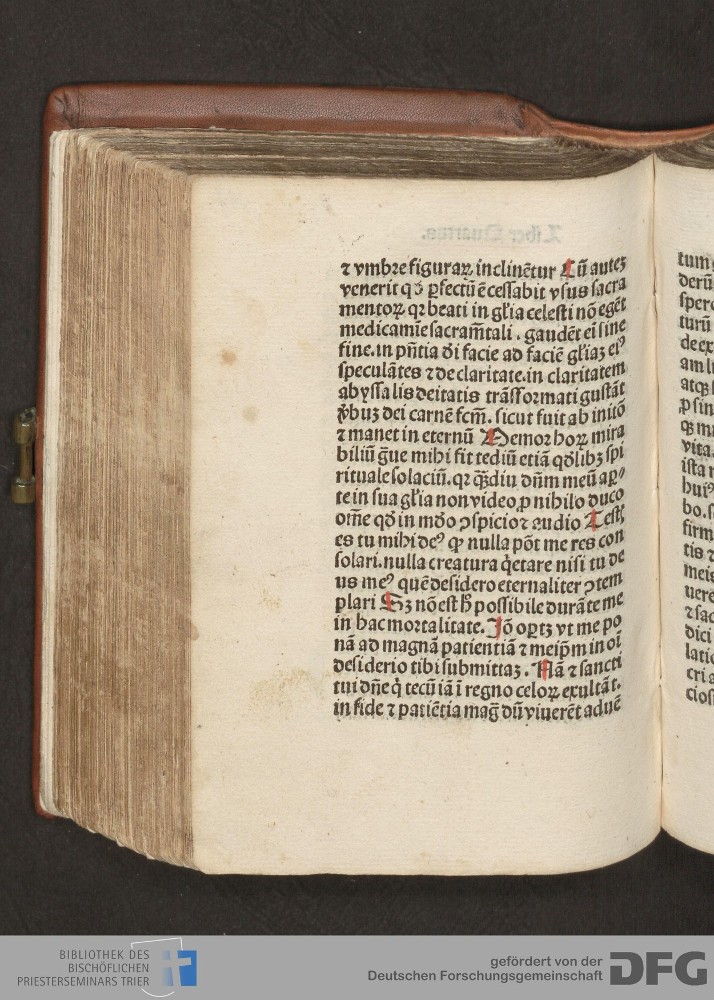 ⁊ vmbre figuraꝝ inclinẽtur Cũ autez
venerit qđ ꝑfectũ ē cessabit vsus sacra
mentoꝝ qꝛ beati in gl'ia celesti nõ egẽt
medicamĩe sacram̃tali . gaudẽt eī sine
fine.in pñtia di facie ad faciē gl'iaꝫ eiꝰ
speculãtes ⁊ de claritate.in claritatem
abyssalis deitatis trãsformati gustãt
v̓buꝫ dei carnē fcm̃. sicut fuit ab initõ
⁊ manet in eternũ Memor hoꝝ mira
biliũ g̃ue mihi fit tediũ etiã qdlibꝫ spi
rituale solaciũ. qꝛ q̃diu dñm meũ aꝑ⸗
te in sua gl'ia non video ꝓ nihilo duco
om̃e qđ in mdo ꝯspicio ⁊ audio Test'
es tu mihi deꝰ ꝙ nulla põt me res con
solari. nulla creatura q̓etare nisi tu de
us meꝰ quē desidero eternaliter ꝯtem
plari Sꝫ nõ est h̓ possibile durãte me
in hac mortalitate. Jõ oꝑtꝫ vt me po
nã ad magnã patientiã ⁊ meip̃m in oĩ
desiderio tibi submittaꝫ . Nã ⁊ sancti
tui dñe q̓ tecũ iã ĩ regno celoꝝ exultãt.
in fide ⁊ patiẽtia mag̃ dũ viuerẽt aduẽ
tum
derũ
spera
turũ
de ex
am li
atqꝫ
ꝓ sin
vita.
ista
huiꝰ
bo.
firm
tis ⁊
meis
uere
⁊ sac
dici
latio
cri a
cios
BIBLIOTHEK DES
BISCHÖFLICHEN
PRIESTERSEMINARS TRIER
gefördert von der
Deutschen Forschungsgemeinschaft
DFG